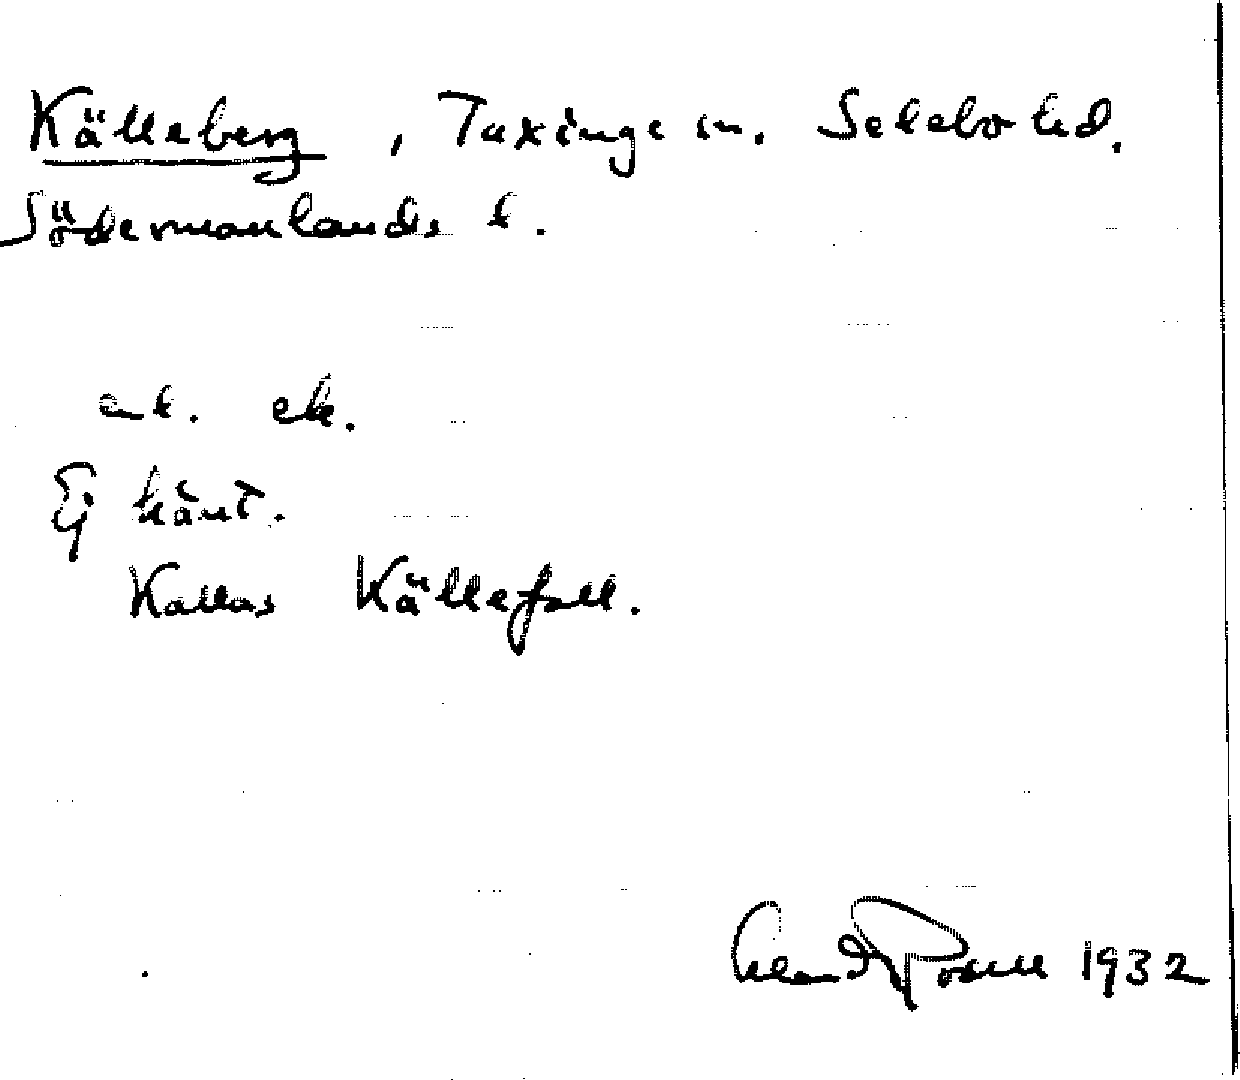 Källeberg, Taxinge sn. Selebo hd.
Södermanlands l.
ek. ek.
Ej känt.
Kallas Källefall.
Erland Rosell 1932